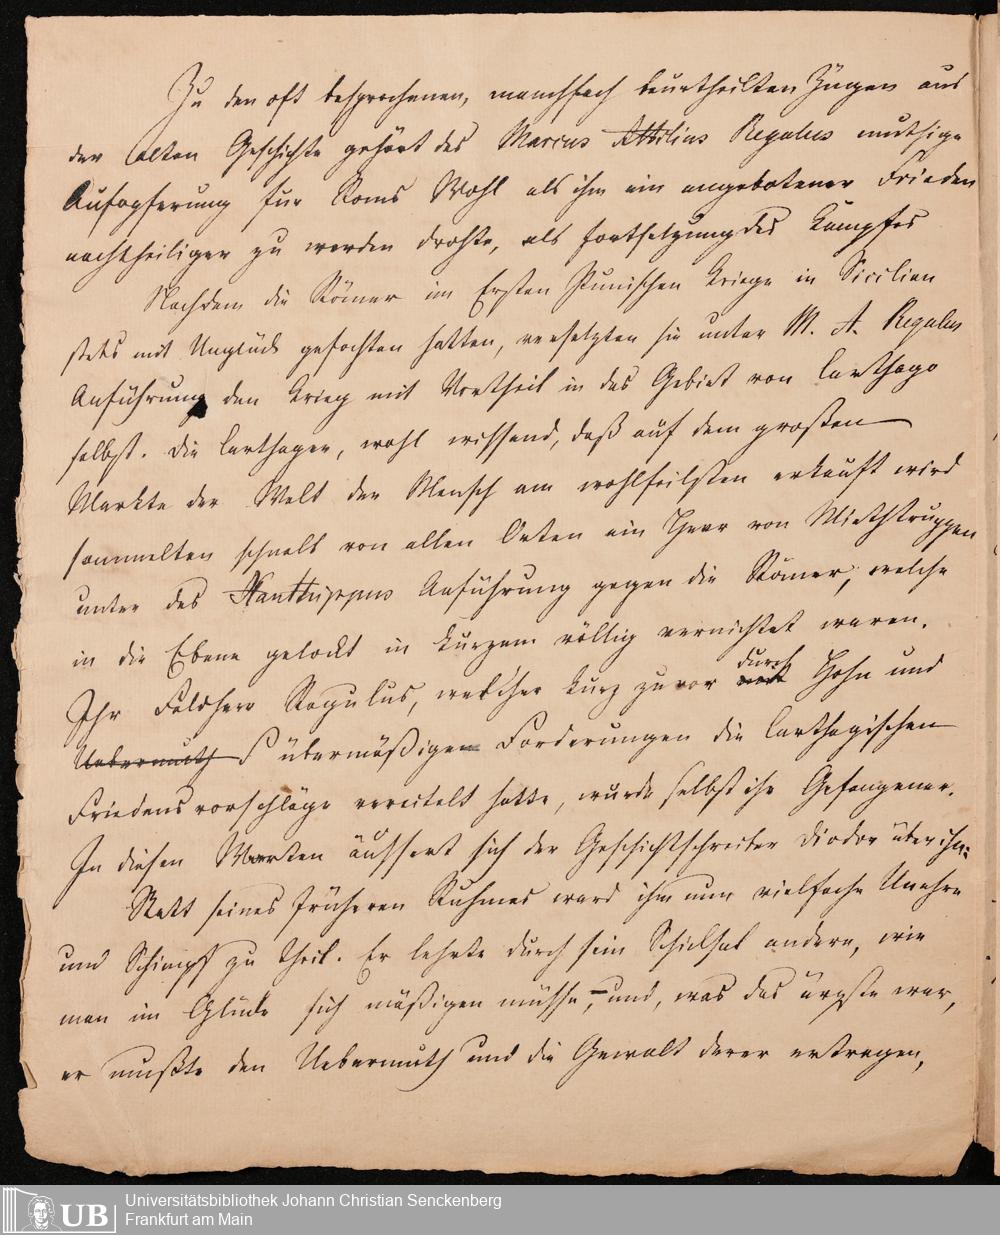 Zu den oft besprochenen, manchfach beurtheilten Zügen aus
der alten Geschichte gehört des Marcus Attilius Regulus muthige
Aufopferung für Roms Wohl als ihm ein angebotener Frieden
nachtheiliger zu werden drohte, als Fortsetzung des Kampfes
Nachdem die Römer im Ersten Punischen Kriege in Sicilien
stets mit Unglück gefochten hatten, versetzten sie unter M. A. Regulus
Anführung den Krieg mit Vortheil in das Gebiet von Carthago
selbst. Die Carthager, wohl wissend, daß auf dem großen
Markte der Welt der Mensch am wohlfeilsten erkauft wird
sammelten schnell von allen Orten ein Heer von Miethstruppen
unter des Xanthippus Anführung gegen die Römer, welche
in die Ebene gelockt in kurzem völlig vernichtet waren.
Ihr Feldherr Regulus, welcher kurz zuvor durch Hohn und
Uebermuth übermäßigen Forderungen die Carthagischen
Friedensvorschläge vereitelt hatte, wurde selbst ihr Gefangener.
In diesen Worten äussert sich der Geschichtschreiber Diodor über ihn:
Statt seines früheren Ruhmes ward ihm nun vielfache Unehre
und Schimpf zu theil. Er lehrte durch sein Schicksal andere, wie
man im Glücke sich mäßigen müsse, und, was das ärgste war,
er mußte den Uebermuth und die Gewalt derer ertragen,
UB
Universitätsbibliothek Johann Christian Senckenberg
Frankfurt am Main